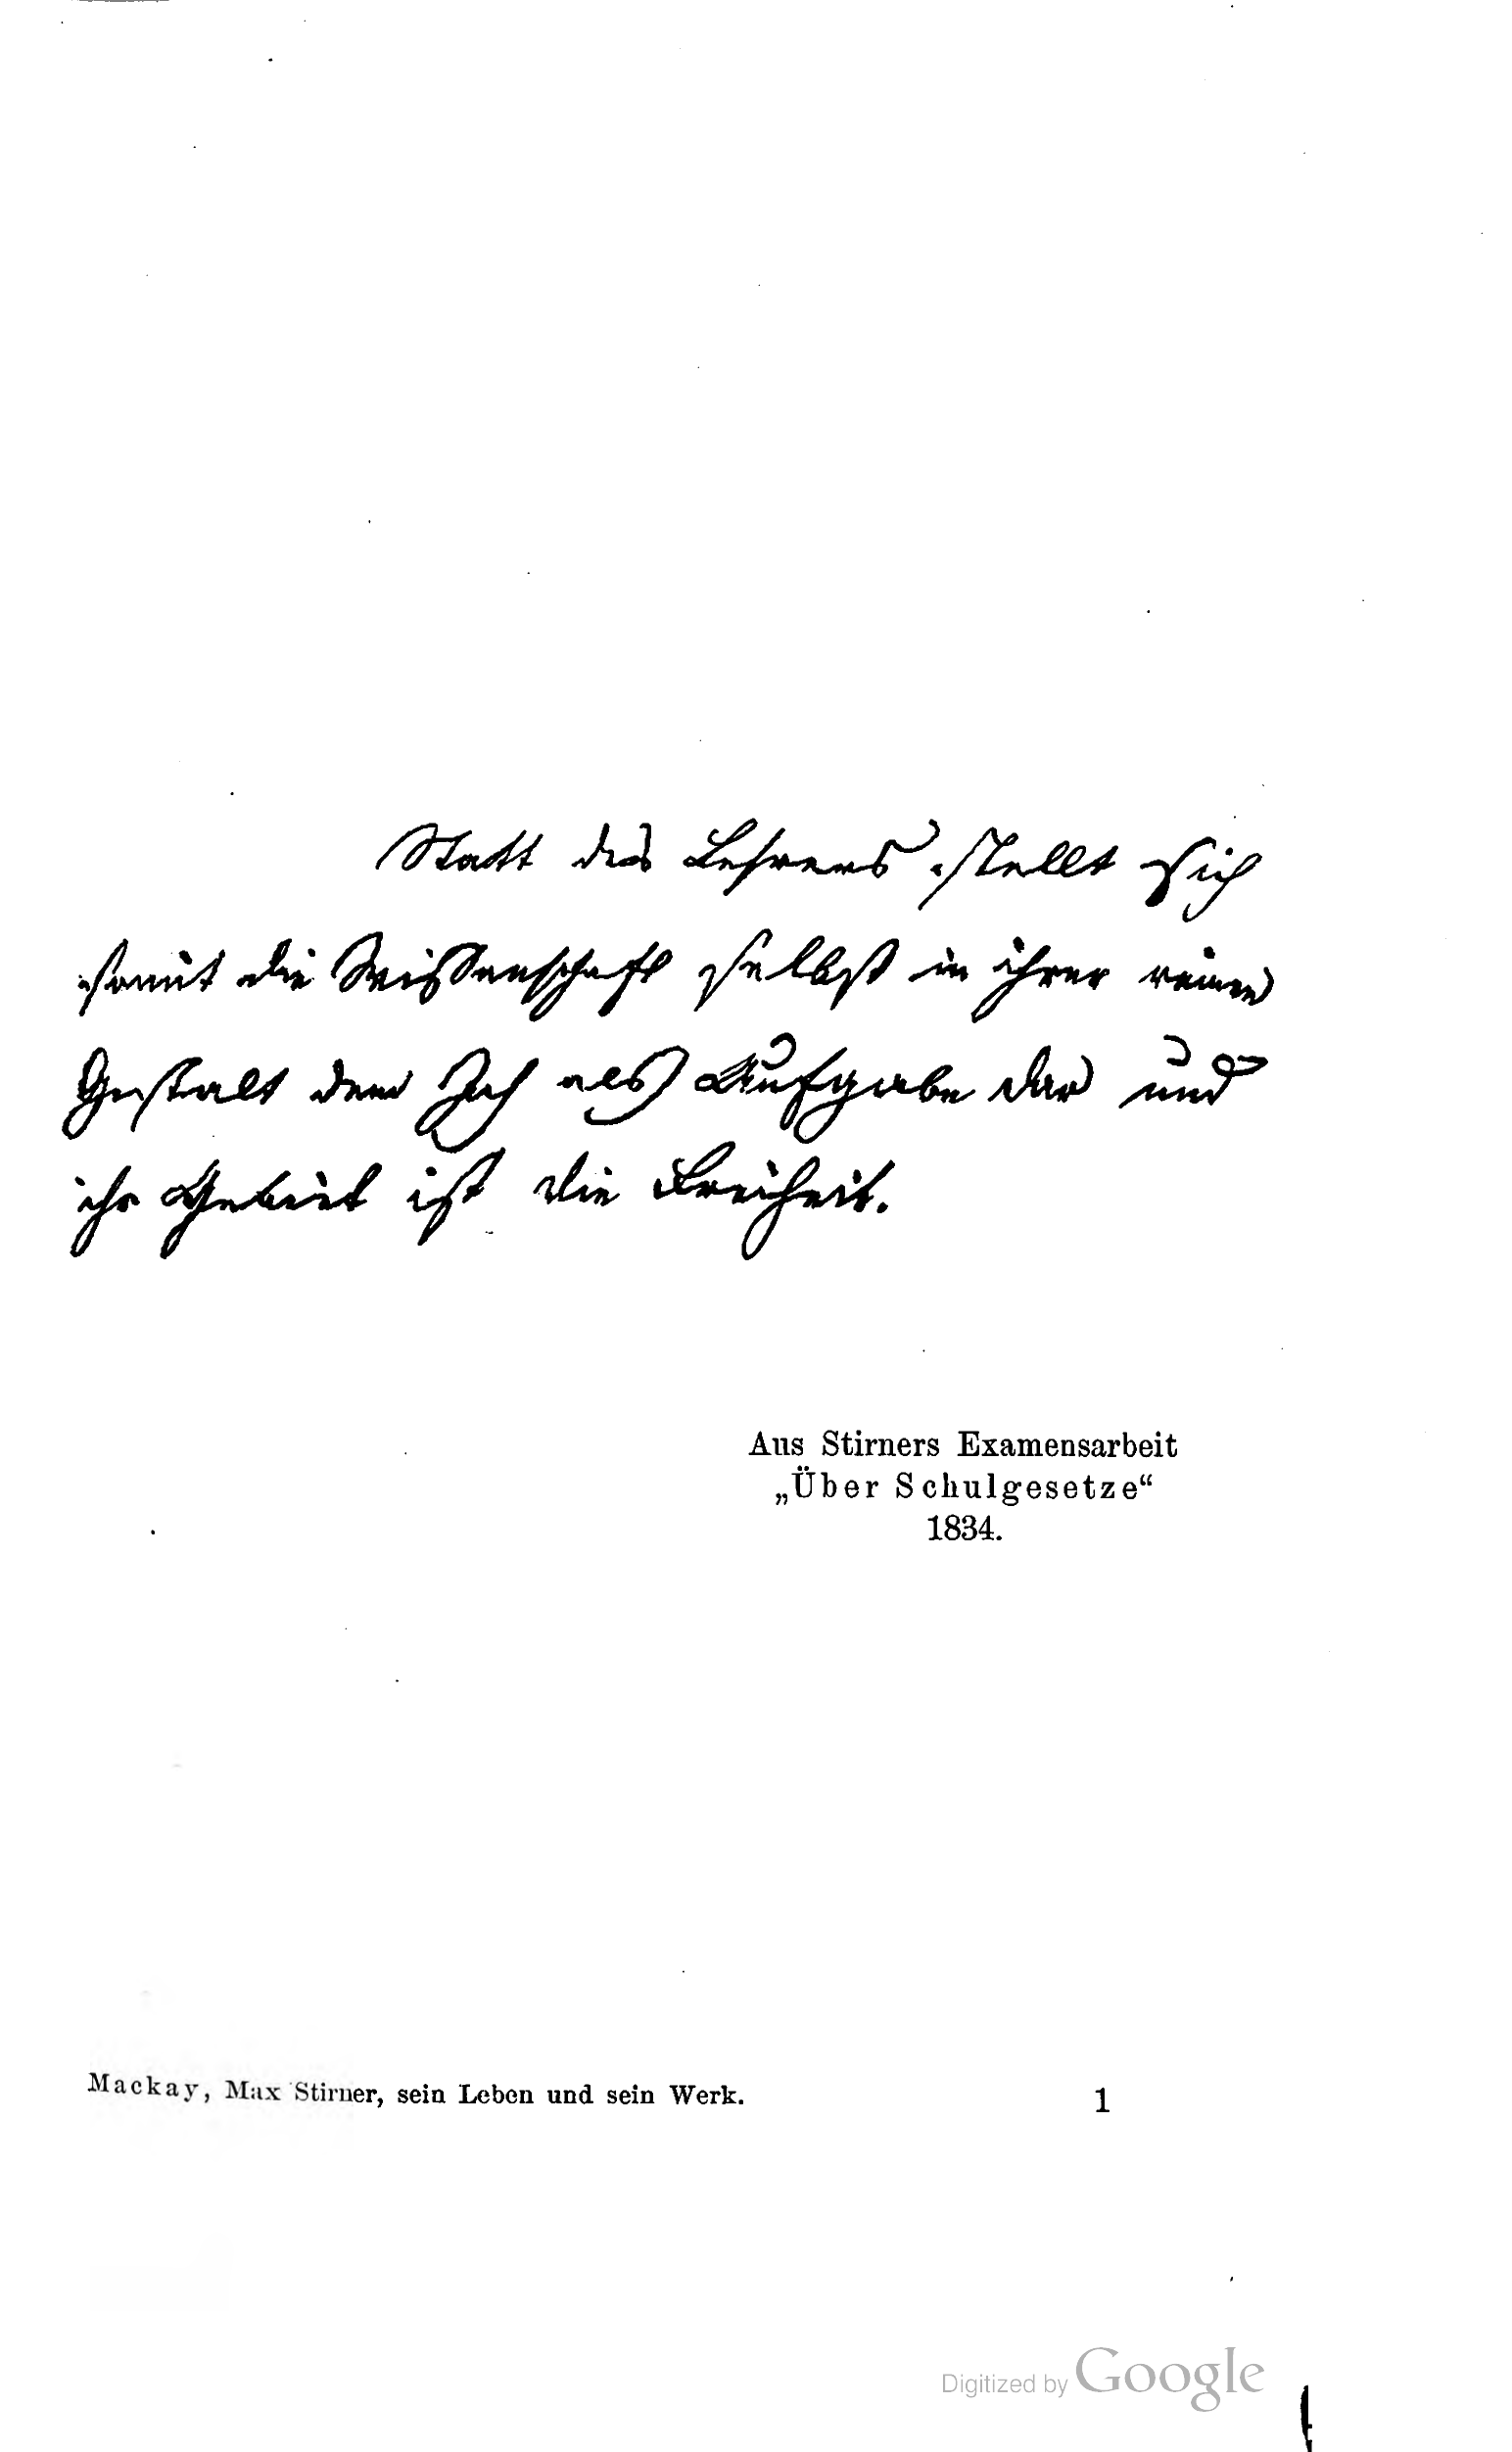 Statt des Lehrers stellt sich
somit die Wissenschaft selbst in ihrer reinen
Gestalt dem Ich als Aufgabe dar und
ihr Gebiet ist die Freiheit.
Aus Stirners Examensarbeit
„Über Schulgesetze“
1834.
Mackay, Max Stirner, sein Leben und sein Werk. 1
Digitized by Google